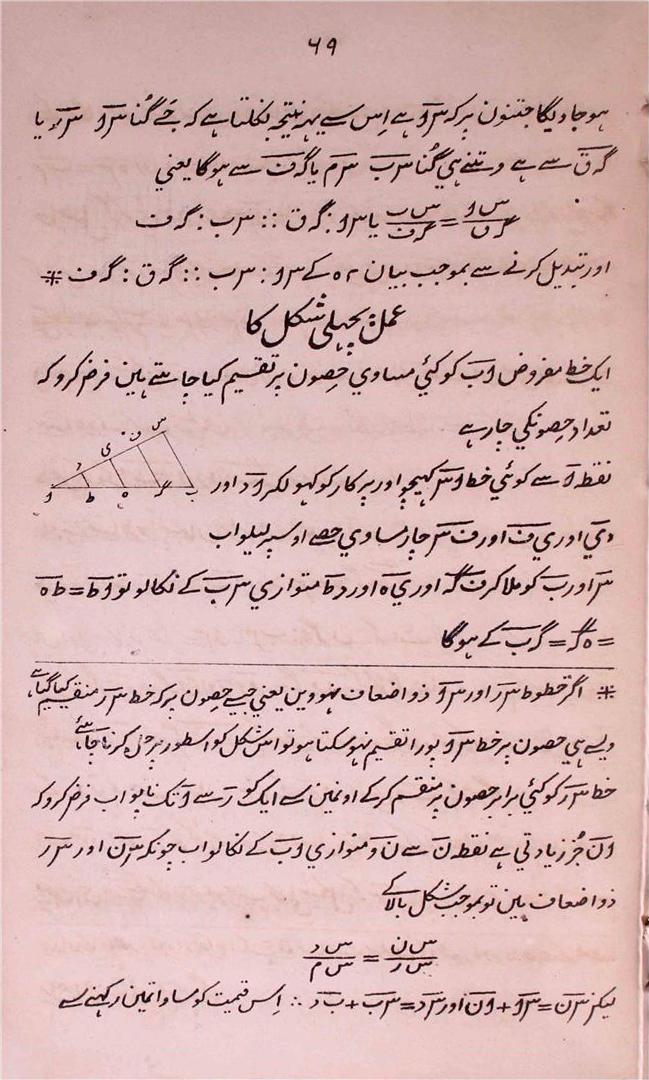 ۶۹
ہو جاویگا جتنون پر کہ س ا ہے اِس سے یہہ نتیجہ نکلتا ہے کہ جَے گُنا س ا س ر یا
گ ق سے ہے وتنے ہی گُنا س ب س م یا گ ف سے ہوگا یعنی
س ا / گ ق = س ب / گ ف یا س ا : گ ق :: س ب : گ ف
اور تبدیل کرنے سے بموجب بیان ۲۵ کے س ا : س ب :: گ ق : گ ف *
عمل پہلی شکل کا
ایک خط مفروض ا ب کو کئی مساوی حصون پر تقسیم کیا چاہتے ہین فرض کرو کہ
تعداد حصونکی چار ہے
نقطہ ا سے کوئی خط ا س کہیچو اور پرکار کو کہولکر ا د اور
د ی اور ی ف اور ف س چار مساوی حصے اوسپر لیلو اب
س اور ب کو ملا کر ف گ اور ی ہ اور د ط متوازی س ب کے نکالو تو ا ط = ط ہ
= ہ گ = گ ب کے ہوگا
ا ط ہ گ ب د ی ف س
* اگر خطوط س ر اور س ا ذو اضعاف نہووین یعنی جیسے حصون پر کہ خط س ر منقسم کیا گیا ہے
ویسے ہی حصون پر خط س ا پورا تقسیم نہو سکتا ہو تو اس شکل کو اسطور پر حل کرنا چاہئے
خط س ر کو کئی برابر حصون پر منقسم کر کے اونمین سے ایک کو ر سے ا تک ناپو اب فرض کرو کہ
ا ن جُز زیادتی ہے نقطہ ن سے ن و متوازی ا ب کے نکالو اب چونکہ س ن اور س ر
ذو اضعاف ہین تو بموجب شکل بالا کے
س ن / س ر = س د / س م
لیکن س ن = س ا + ا ن اور س د = س ب + ب د ∴ اِس قیمت کو مساواتمین رکہنے سے